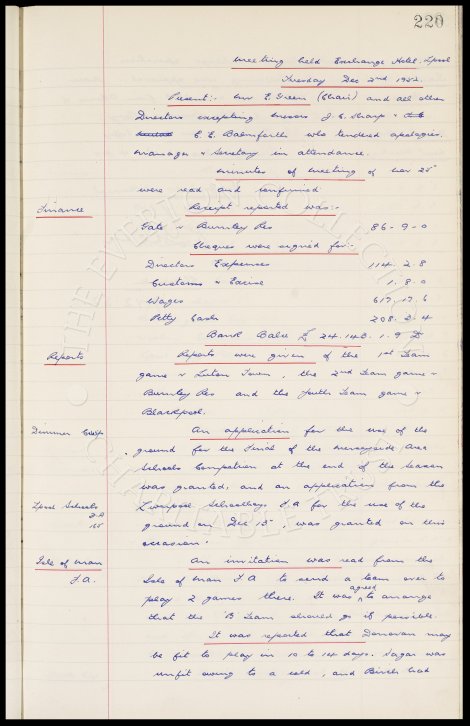 220
Meeting held Exchange Hotel. Lpool
Tuesday Dec 2nd 1952.
Present:- Mr E. Green (Chair) and all other
Directors excepting Messrs J. C. Sharp &
C. E. Balmforth who tendered apologies.
Manager & Secretary in attendance.
Minutes of Meeting of Nov 25th
were read and confirmed.
Finance
Receipt reported was:-
Gate v Burnley Res 86-9-0
Cheques were signed for:-
Directors Expenses 114.2.8
Customs & Excise 1.8.0
Wages 617.17.6
Petty Cash 208.2.4
Bank Balce £24.148.1.9
Reports
Reports were given of the 1st Team
game v Luton Town, the 2nd Team game v
Burnley Res and the Youth Team game v
Blackpool.
Dimmer Cup
An application for the use of the
ground for the Final of the Merseyside Area
Schools Competion at the end of the season
was granted, and an application from the
Lpool Schools
F.A
Liverpool Schoolboys F.A for the use of the
ground on Dec 15th, was granted on this
occasion.
Isle of Man
F.A.
An invitation was read from the
Isle of Man F.A to send a team over to
play 2 games there. It was agreed to arrange
that the 'B' Team should go if possible.
It was reported that Donovan may
be fit to play in 10 to 14 days. Sagar was
unfit owing to a cold, and Birch had
THE EVERTON COLLECTION
CHARITABLE